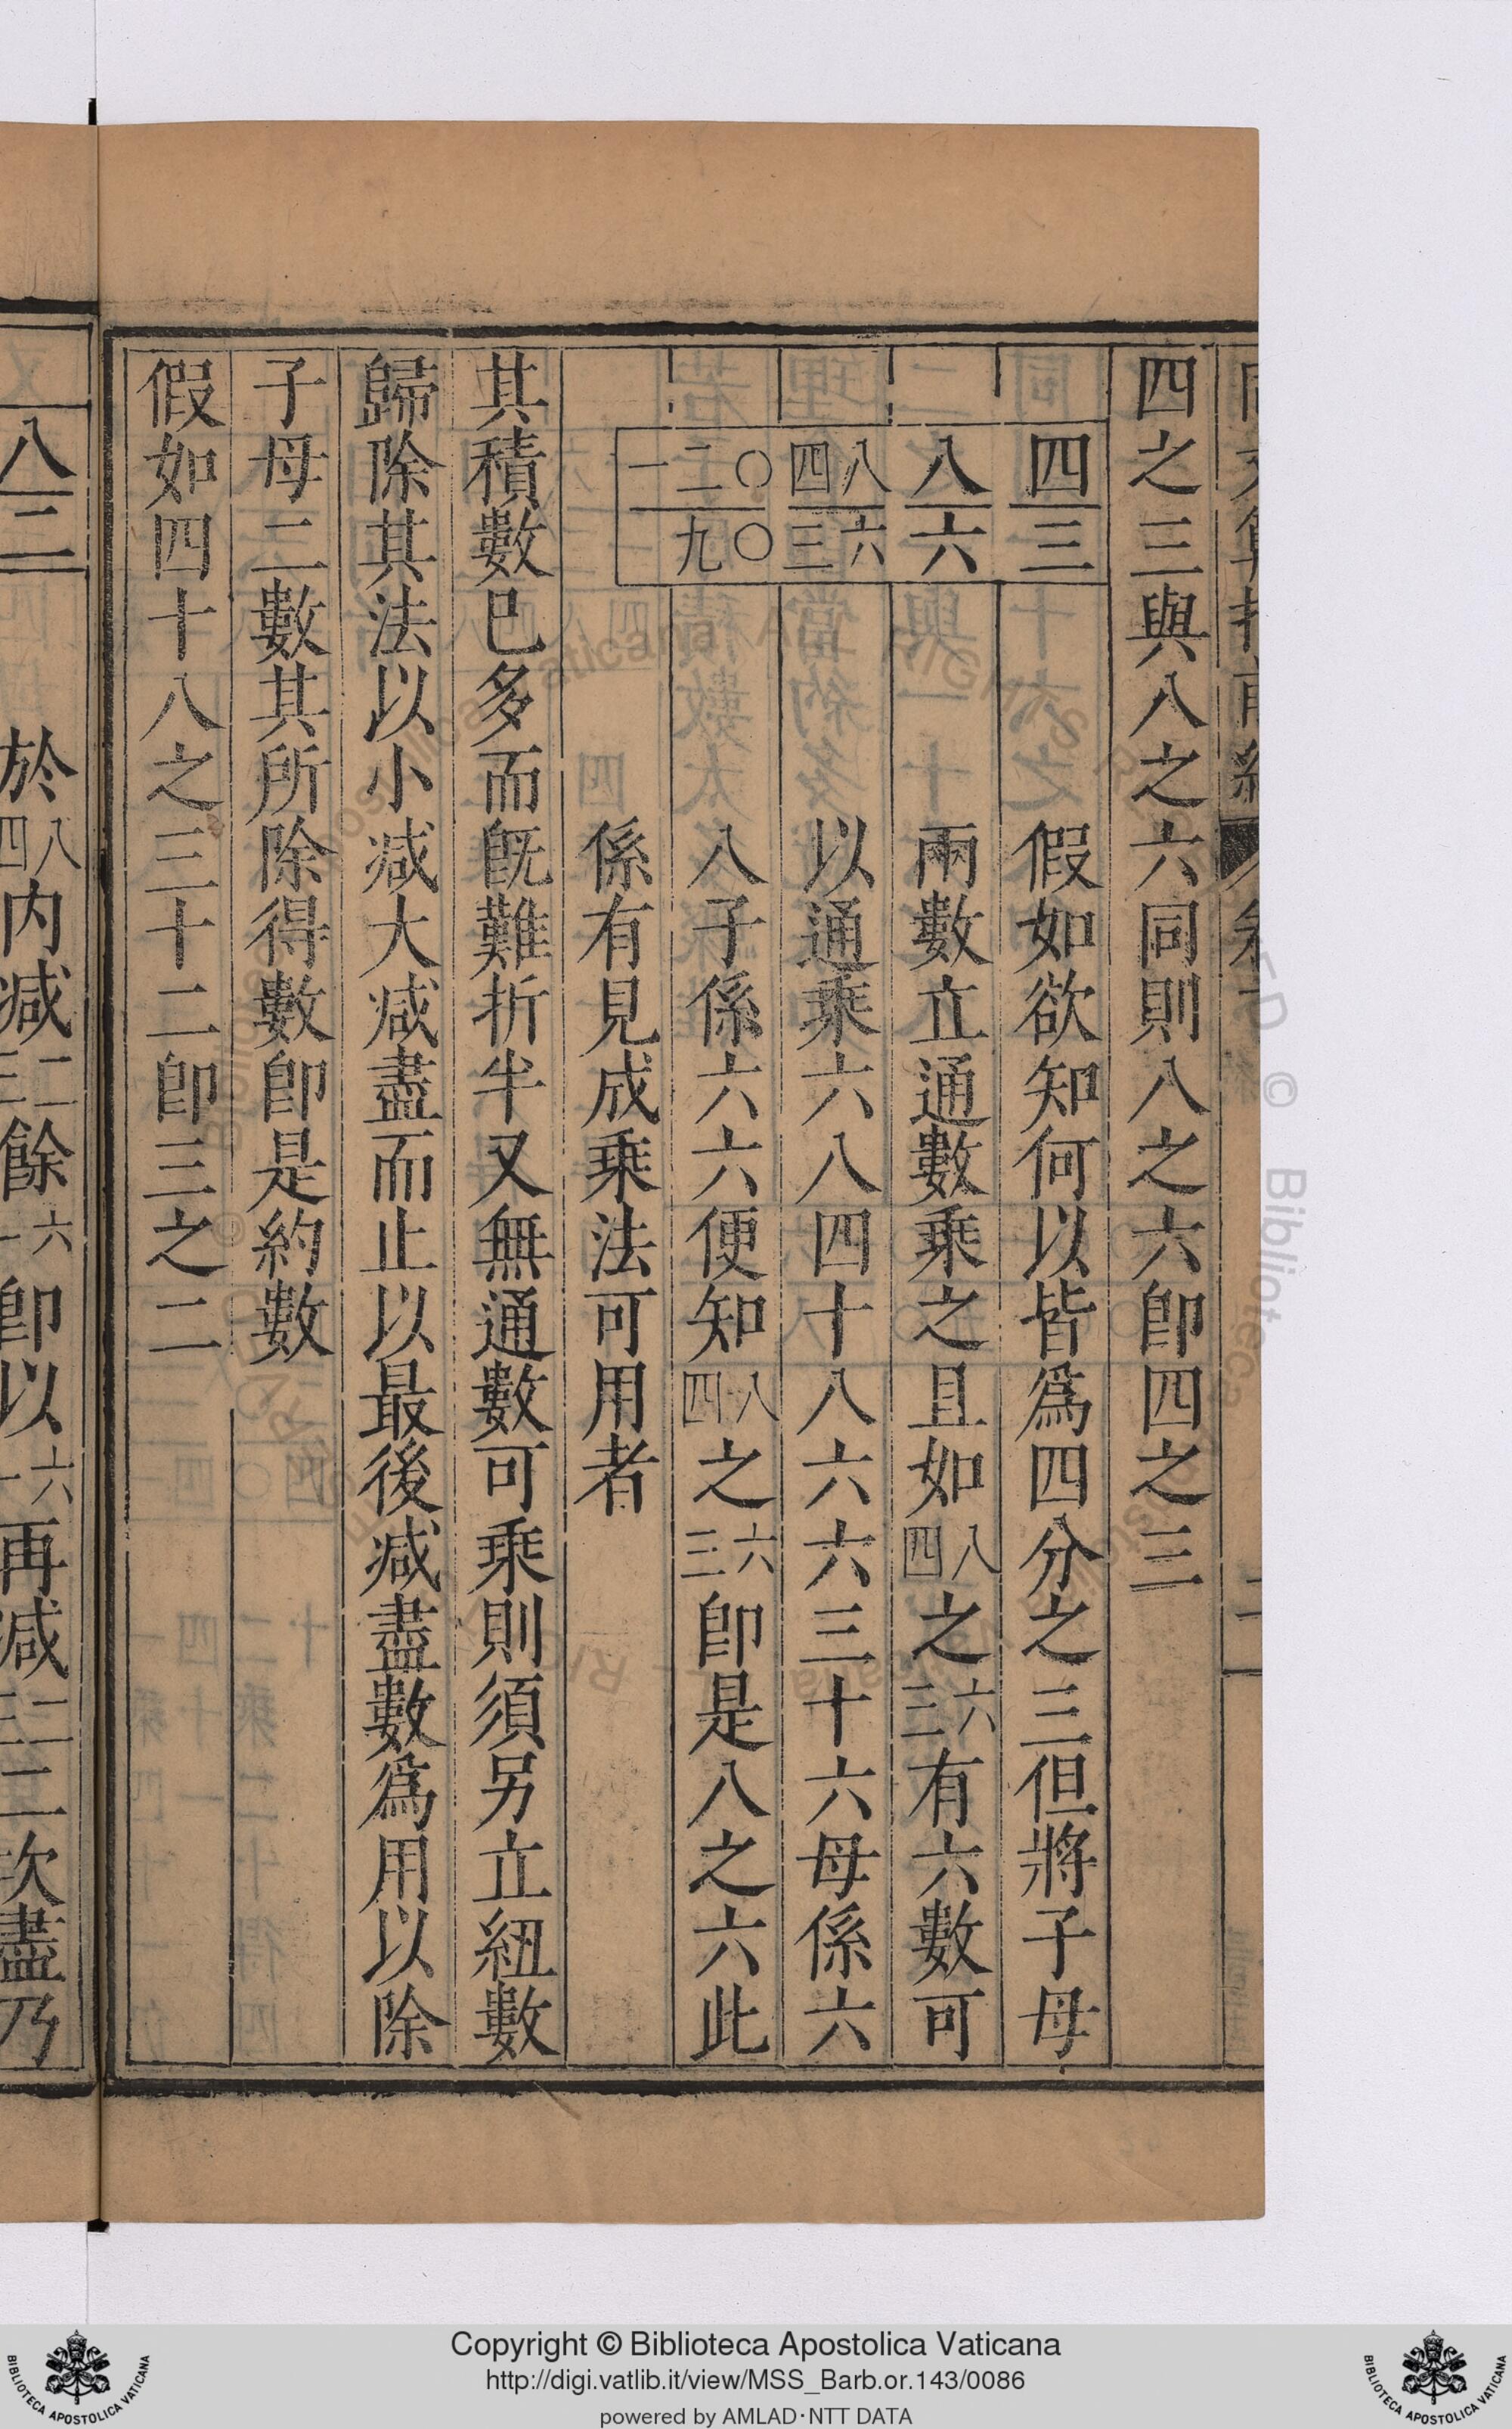 四之三與八之六同則八之六卽四之三
四三 假如欲知何以皆爲四分之三但將子母
八六 兩數立通數乘之且如四八之三六有六數可
四八三六 以通乘六八四十八六六三十六母係六
一二〇九〇 八子係六六便知四八之三六卽是八之六此
係有見成乘法可用者
其積數巳多而旣難折半又無通數可乘則須另立紐數
歸除其法以小减大减盡而止以最後减盡數爲用以除
子母二數其所除得數卽是約數
假如四十八之三十二卽三之二
八二 於四八内减三二餘一六卽以一六再减三二二次盡乃
Copyright © Biblioteca Apostolica Vaticana
http://digi.vatlib.it/view/MSS_Barb.or.143/0086
powered by AMLAD·NTT DATA
BIBLIOTECA APOSTOLICA VATICANA
BIBLIOTECA APOSTOLICA VATICANA